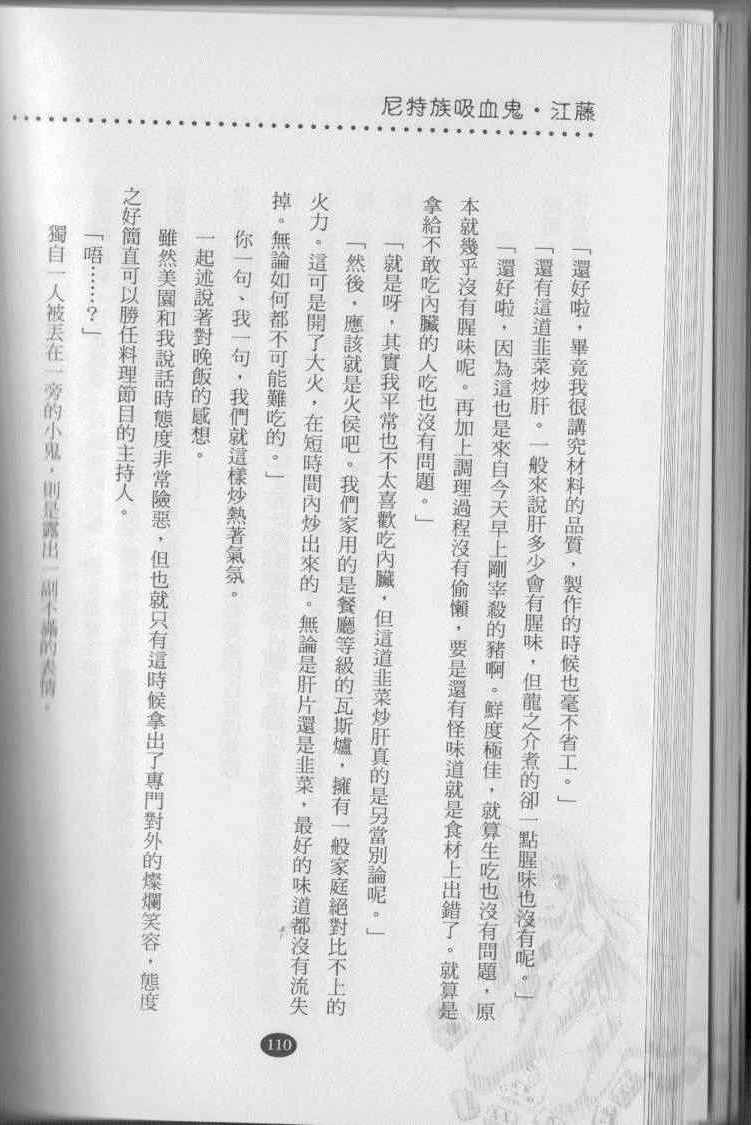 尼特族吸血鬼・江藤
「還好啦，畢竟我很講究材料的品質，製作的時候也毫不省工。」
「還有這道韭菜炒肝。一般來說肝多少會有腥味，但龍之介煮的卻一點腥味也沒有呢。」
「還好啦，因為這也是來自今天早上剛宰殺的豬啊。鮮度極佳，就算生吃也沒有問題，原
本就幾乎沒有腥味呢。再加上調理過程沒有偷懶，要是還有怪味道就是食材上出錯了。就算是
拿給不敢吃內臟的人吃也沒有問題。」
「就是呀，其實我平常也不太喜歡吃內臟，但這道韭菜炒肝真的是另當別論呢。」
「然後，應該就是火侯吧。我們家用的是餐廳等級的瓦斯爐，擁有一般家庭絕對比不上的
火力。這可是開了大火，在短時間內炒出來的。無論是肝片還是韭菜，最好的味道都沒有流失
掉。無論如何都不可能難吃的。」
你一句、我一句，我們就這樣炒熱著氣氛。
一起述說著對晚飯的感想。
雖然美園和我說話時態度非常險惡，但也就只有這時候拿出了專門對外的燦爛笑容，態度
之好簡直可以勝任料理節目的主持人。
「唔……？」
獨自一人被丟在一旁的小鬼，則是露出一副不滿的表情。
110